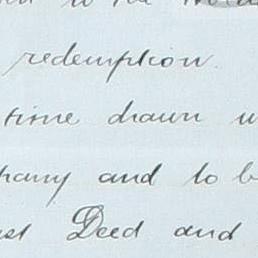 to the
redemption.
time drawn
pany and to b
st Deed and